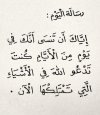 رسالة اليوم :
إياك أن تنسى أنك في
يوم من الأيام كنت
تدعو الله في الأشياء
التي تمتلكها الآن .